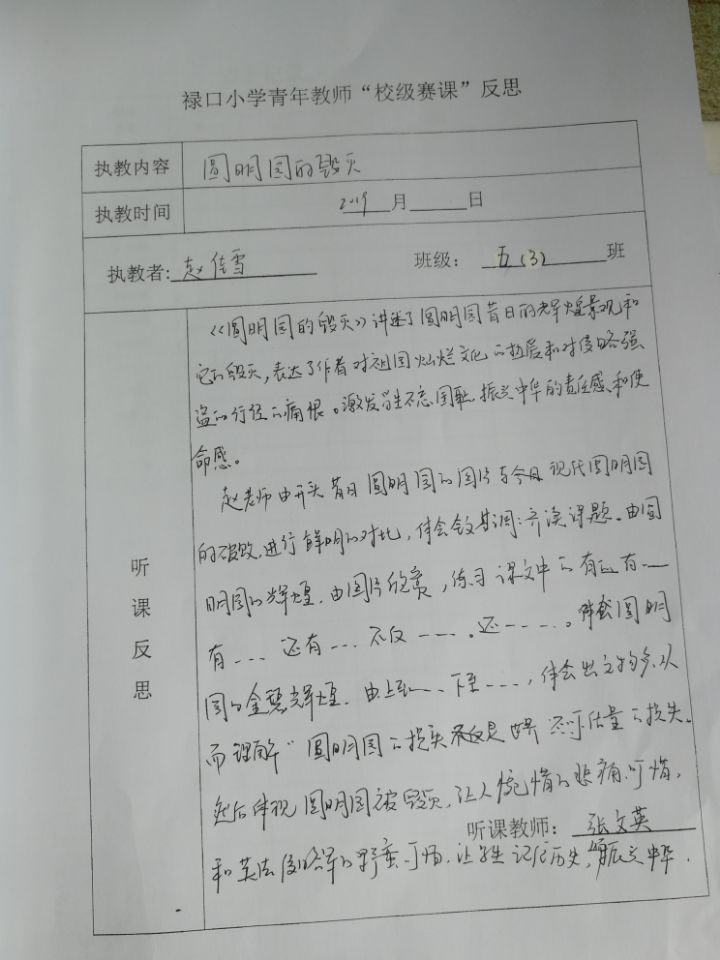 禄口小学青年教师“校级赛课”反思
执教内容 圆明园的毁灭
执教时间 2019 月 日
执教者: 赵佳雪 班级: 五(3) 班
听课反思
《圆明园的毁灭》讲述了圆明园昔日的辉煌景观和
它的毁灭,表达了作者对祖国灿烂文化的热爱和对侵略强
盗的行径的痛恨。激发学生不忘国耻,振兴中华的责任感和使
命感。
赵老师由开头昔日圆明园的图片与今日现代圆明园
的破败,进行鲜明的对比,体会全文基调:齐读课题。由圆
明园的辉煌,由图片欣赏,练习课文中的有……有……
有…… 还有…… 不仅……,还……。体会圆明
园的金碧辉煌。由上至……、下至……,体会出文物多,从
而理解“圆明园的损失 不可估量的损失。
然后体现圆明园被毁灭,让人惋惜的悲痛,可惜,
听课教师: 张文英
和英法侵略军的野蛮、可恶,让学生记住历史,振兴中华.